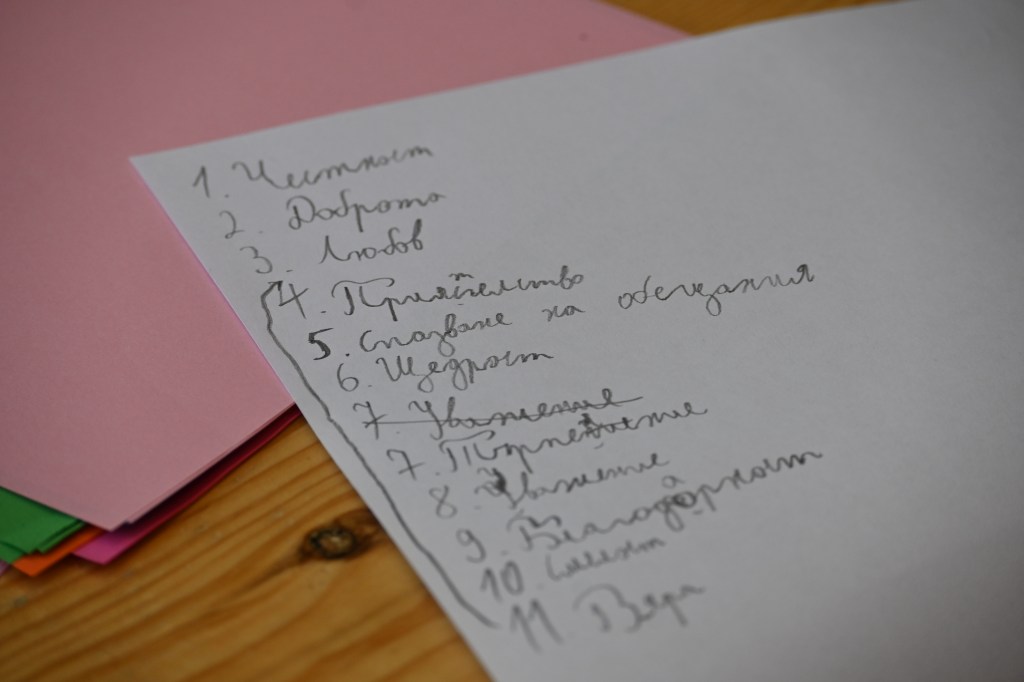 1. Честност
2. Доброта
3. Любов
4. Приятелство
5. Спазване на обещания
6. Щедрост
7. Уважение
7. Търпение
8. Уважение
9. Благодарност
10. Смелост
11. Вяра